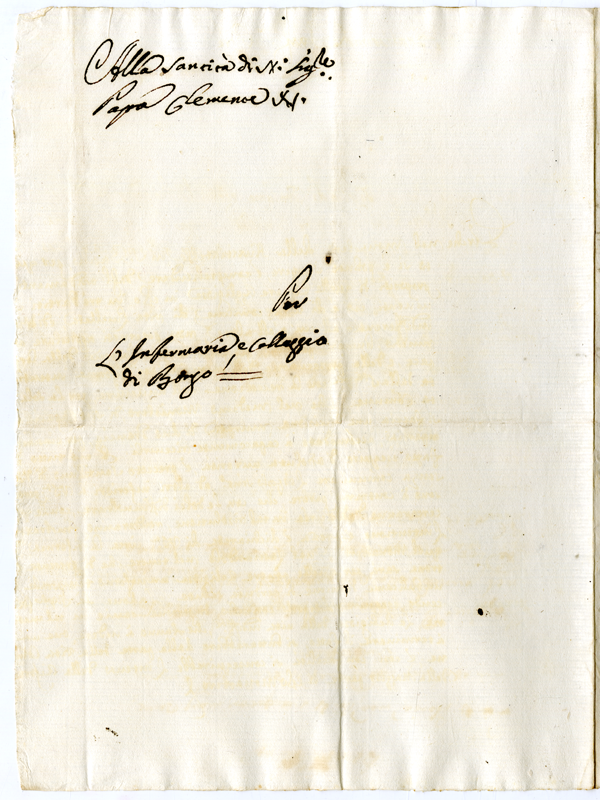 Alla Santità di N. Sig.re
Papa Clemente XI.
Per
L'Infermaria e Colleggio
di Borgo